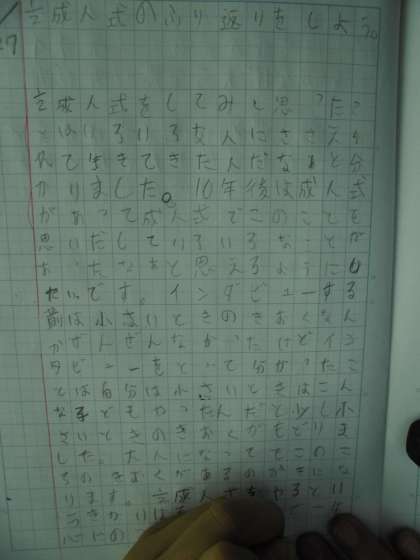 立成人式のふり返りをしよう。
立成人式をしてみて思ったこ
とはいろいろな人にささえら
れて生きてきた人だなあと分
かりました。10年後は成人式
があって成人式でこのことを
思いだしていろいろなことが
あったなあと思えるようにし
たいです。インタビューする
前は小さいときのきおくなん
かぜんぜんなかったけどイン
タビューをとって分かったこ
とは自分は小さいときはこん
な子どもやったんだと少し小
さいときのきおくがもどりま
した。大人になってもこのこ
ろのきおくがあるのかきにな
ります。立成人式をやるとい